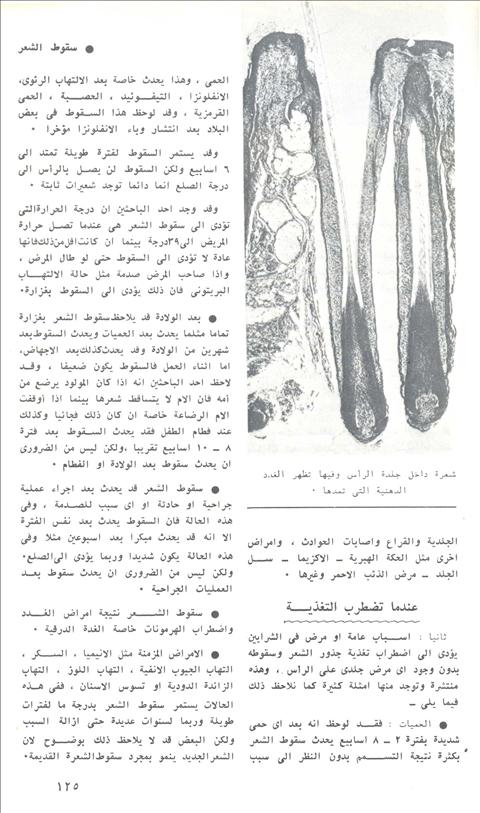 شعرة داخل جلدة الرأس وفيها تظهر الغدد
الدهنية التى تمدها ٠
الجلدية والقراع واصابات الحوادث ، وامراض
اخرى مثل الحكة الهبرية ــ الاكزيما ــ ســل
الجلد ــ مرض الذئب الاحمر وغيرها ٠
عندما تضطرب التغذيــة
ثانيا : اسـباب عامة او مرض فى الشرايين
يؤدى الى اضطراب تغذية جذور الشعر وسقوطه
بدون وجود اى مرض جلدى على الرأس ، وهذه
منتشرة وتوجد منها امثلة كثيرة كما نلاحظ ذلك
فيما يلى ــ
● الحميات : فقـــد لوحظ انه بعد اى حمى
شديدة بفترة ٢ ــ ٨ اسابيع يحدث سقوط الشعر
بكثرة نتيجة التســمم بدون النظر الى سبب
● سقوط الشعر
الحمى ، وهذا يحدث خاصة بعد الالتهاب الرئوى،
الانفلونزا ، التيفــوئيد ، الحصــبة ، الحمى
القرمزية ، وقد لوحظ هذا السـقوط فى بعض
البلاد بعد انتشار وباء الانفلونزا مؤخرا ٠
وقد يستمر السقوط لفترة طويلة تمتد الى
٦ اسابيع ولكن السقوط لن يصل بالرأس الى
درجة الصلع انما دائما توجد شعيرات ثابتة ٠
وقد وجد احد الباحثين ان درجة الحرارةالتى
تؤدى الى سقوط الشعر هى عندما تصـل حرارة
المريض الى٣٩درجة بينما ان كانت اقل من ذلك فانها
عادة لا تؤدى الى السقوط حتى لو طال المرض ،
واذا صاحب المرض صدمة مثل حالة الالتهــاب
البريتونى فان ذلك يؤدى الى السقوط بغزارة٠
● بعد الولادة قد يلاحظ سقوط الشعر بغزارة
تماما مثلما يحدث بعد الحميات ويحدث السقوط بعد
شهرين من الولادة وقد يحدث كذلك بعد الاجهاض،
اما اثناء الحمل فالسقوط يكون ضعيفا ، وقــد
لاحظ احد الباحثين انه اذا كان المولود يرضع من
أمه فان الام لا يتساقط شعرها بينما اذا أوقفت
الام الرضاعة خاصة ان كان ذلك فجائيا وكذلك
عند فطام الطفل فقد يحدث الســقوط بعد فترة
٨ ــ ١٠ اسابيع تقريبا ،ولكن ليس من الضرورى
ان يحدث سقوط بعد الولادة او الفطام ٠
● سقوط الشعر قد يحدث بعد اجراء عملية
جراحية او حادثة او اى سبب للصـدمة ، وفى
هذه الحالة فان السقوط يحدث بعد نفس الفترة
الا انه قد يحدث مبكرا بعد اسبوعين مثلا وفى
هذه الحالة يكون شديدا وربما يؤدى الى الصلع٠
ولكن ليس من الضرورى ان يحدث سقوط بعــد
العمليات الجراحية ٠
● سقوط الشـــعر نتيجة امراض الغــدد
واضطراب الهرمونات خاصة الغدة الدرقية ٠
● الامراض المزمنة مثل الانيميا ، السـكر ،
التهاب الجيوب الانفية ، التهاب اللوز ، التهاب
الزائدة الدودية او تسوس الاسنان ، ففى هــذه
الحالات يستمر سقوط الشعر بدرجة ما لفترات
طويلة وربما لسنوات عديدة حتى ازالة السبب
ولكن البعض قد لا يلاحظ ذلك بوضــوح لان
الشعر الجديد ينمو بمجرد سقوط الشعرة القديمة٠
١٢٥